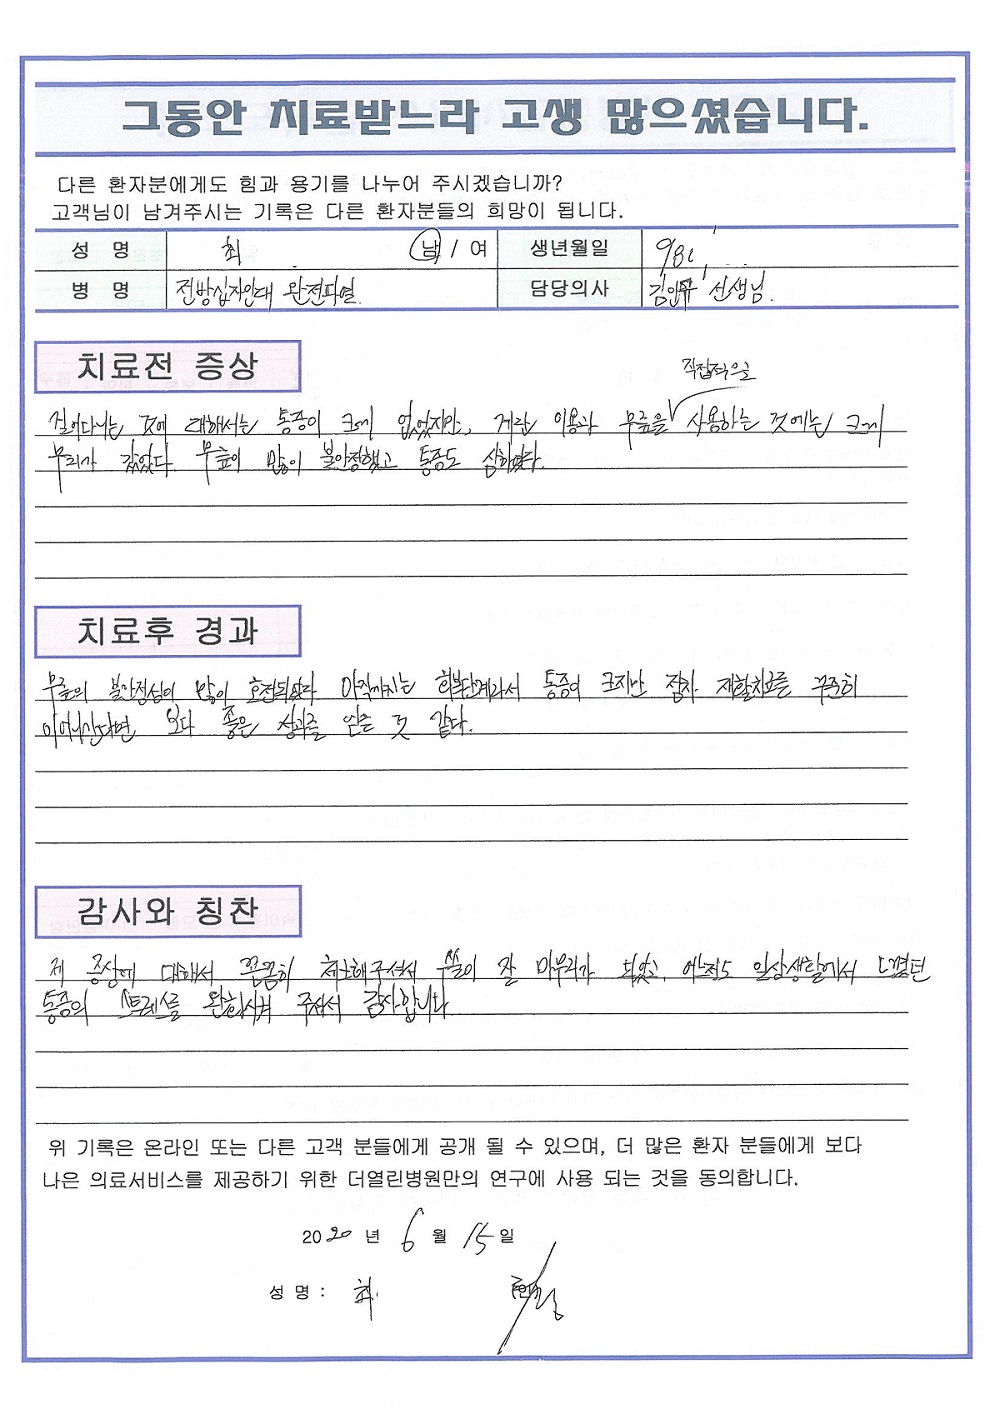 그동안 치료받느라 고생 많으셨습니다.
다른 환자분에게도 힘과 용기를 나누어 주시겠습니까?
고객님이 남겨주시는 기록은 다른 환자분들의 희망이 됩니다.
성 명 최 남 / 여 생년월일 98
병 명 전방십자인대 완전파열. 담당의사 선생님.
치료전 증상
직접적으로
걸어다니는 것에 대해서는 통증이 크게 없었지만, 계단 이용과 무릎을 사용하는 것에는 크게
무리가 갔었다. 무릎이 많이 불안정했고 통증도 심하였다.
치료후 경과
무릎의 불안정성이 많이 호전되었다. 아직까지는 회복단계라서 통증이 크지만 점차 재활치료를 꾸준히
이어나간다면 보다 좋은 성과를 얻을 것 같다.
감사와 칭찬
제 증상에 대해서 꼼꼼히 체크해주셔서 수술이 잘 마무리가 되었고, 일상생활에서 느꼈던
통증의 스트레스를 완화시켜 주셔서 감사합니다.
위 기록은 온라인 또는 다른 고객 분들에게 공개 될 수 있으며, 더 많은 환자 분들에게 보다
나은 의료서비스를 제공하기 위한 더열린병원만의 연구에 사용 되는 것을 동의합니다.
2020 년 6 월 15 일
성 명 : 최